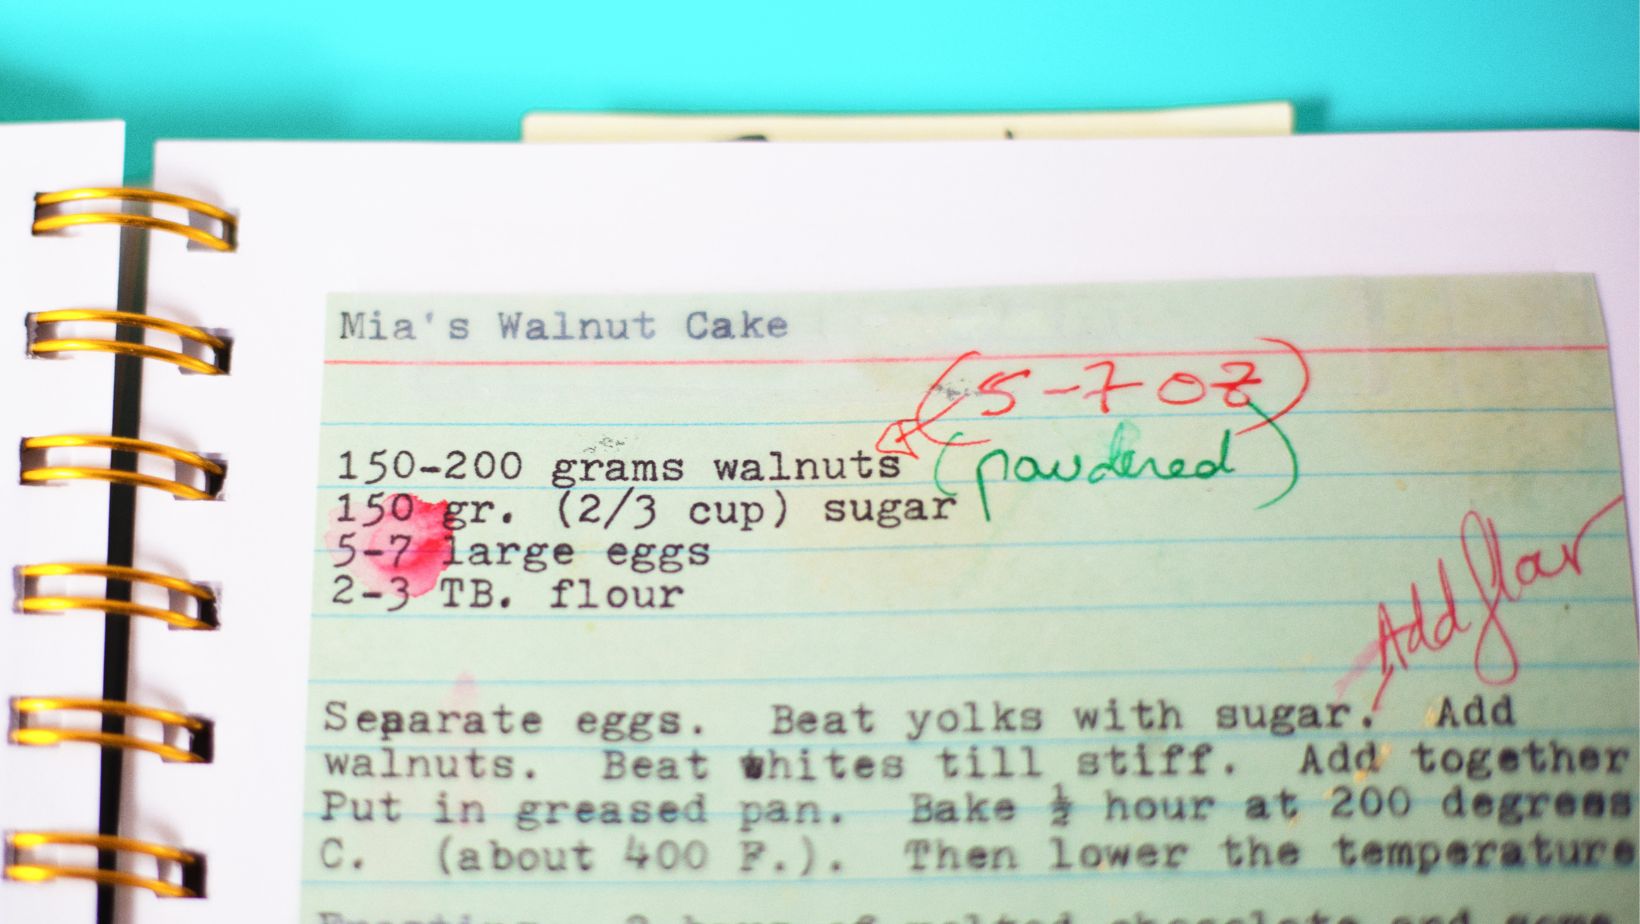 Mia's Walnut Cake
(5-7 oz)
150-200 grams walnuts (powdered)
150 gr. (2/3 cup) sugar
5-7 large eggs
2-3 TB. flour
Add flour
Separate eggs. Beat yolks with sugar. Add
walnuts. Beat whites till stiff. Add together
Put in greased pan. Bake ½ hour at 200 degrees
C. (about 400 F.). Then lower the temperature